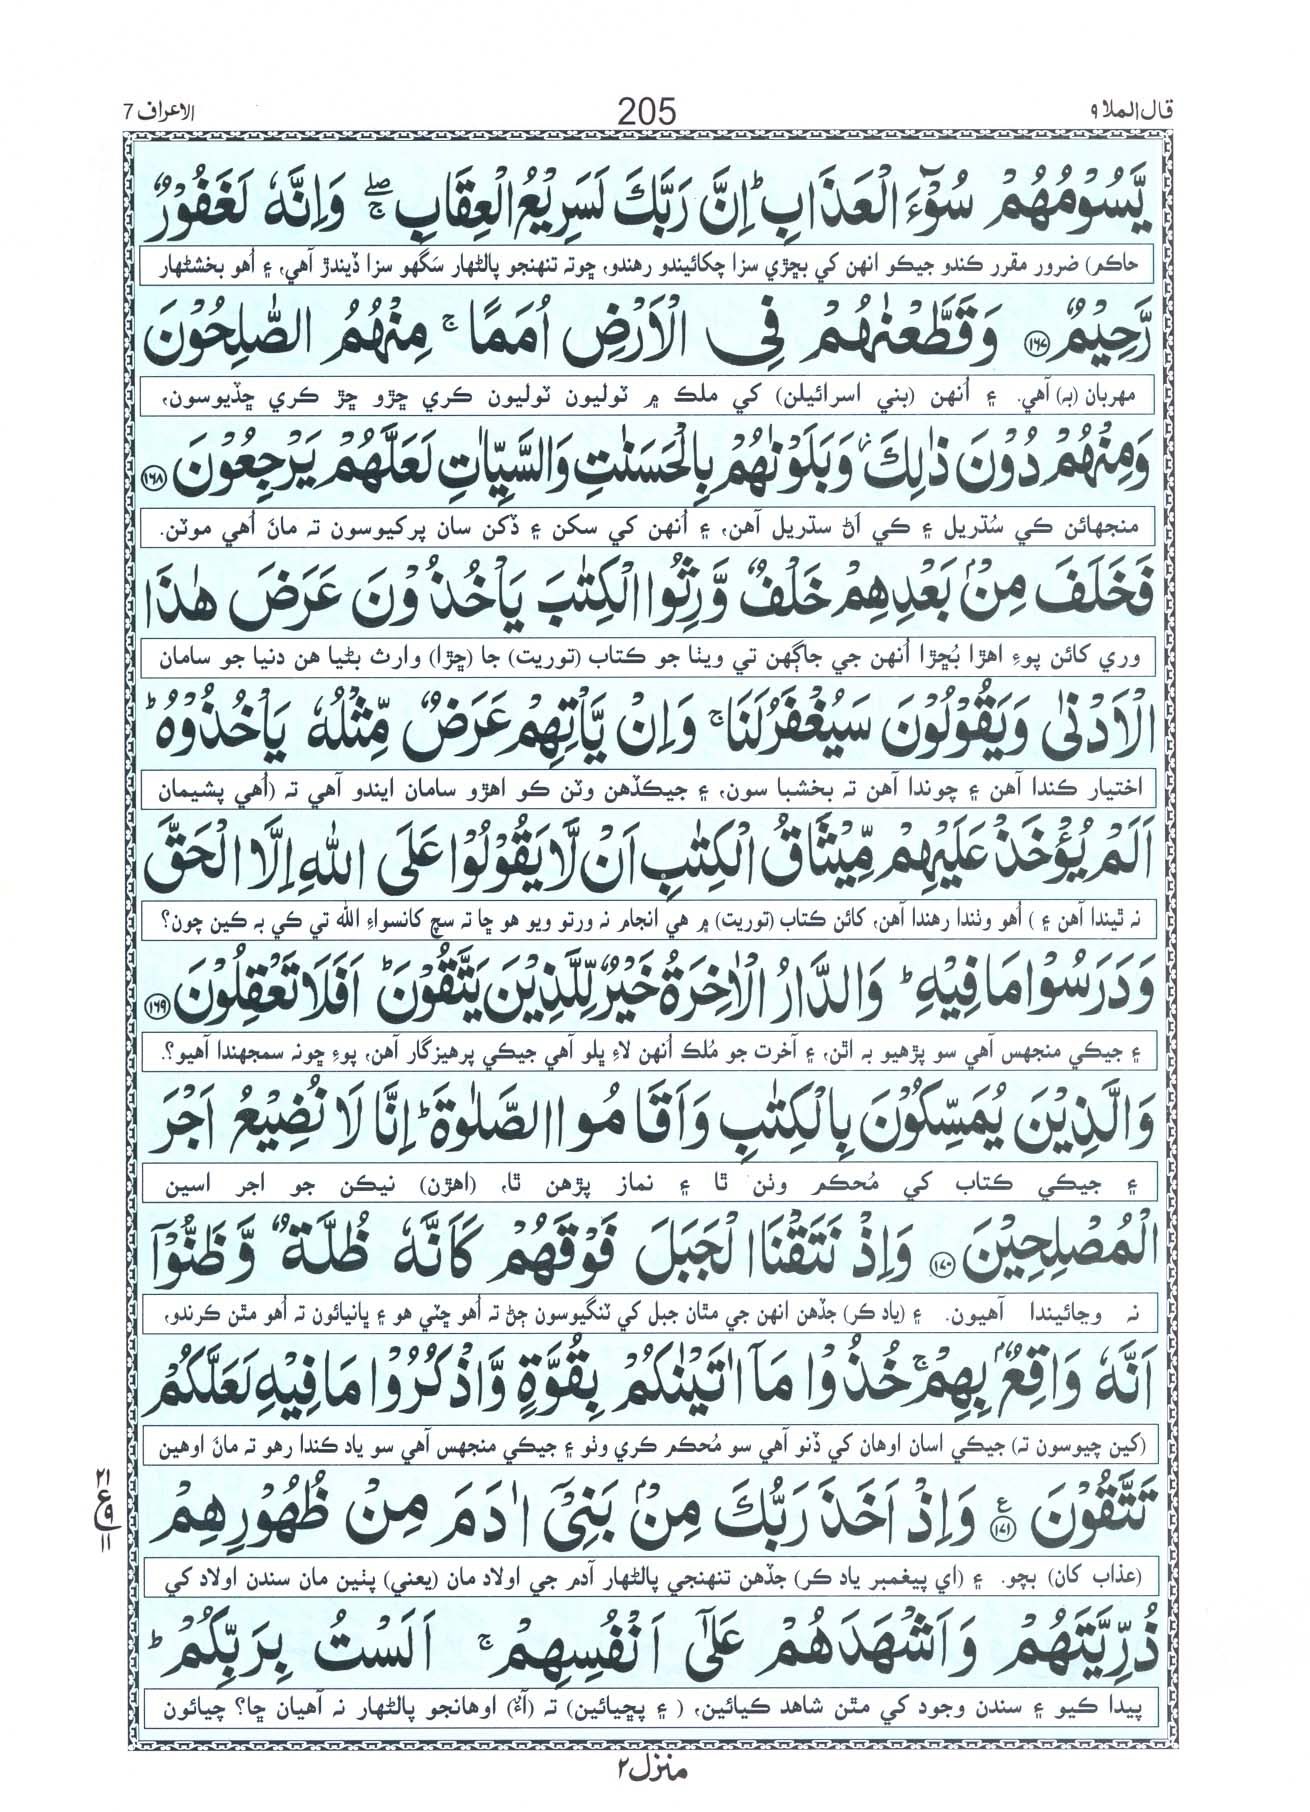 قال الملا ٩
205
الاعراف 7
يَّسُوْمُهُمْ سُوْٓءَ الْعَذَابِ ؕ اِنَّ رَبَّكَ لَسَرِيْعُ الْعِقَابِ ۚۖ وَاِنَّهٗ لَغَفُوْرٌ
حاڪم) ضرور مقرر ڪندو جيڪو انهن کي بڇڙي سزا چکائيندو رهندو، ڇوته تنهنجو پالڻهار سگهو سزا ڏيندڙ آهي، ۽ اُهو بخشڻهار
رَّحِيْمٌ ﴿۱۶۷﴾ وَقَطَّعْنٰهُمْ فِى الْاَرْضِ اُمَمًا ۚ مِنْهُمُ الصّٰلِحُوْنَ
مهربان (بہ) آهي. ۽ اُنهن (بني اسرائيلن) کي ملڪ ۾ ٽوليون ٽوليون ڪري ڇڙو ڇڙ ڪري ڇڏيوسون،
وَمِنْهُمْ دُوْنَ ذٰلِكَ ؗ وَبَلَوْنٰهُمْ بِالْحَسَنٰتِ وَالسَّيِّاٰتِ لَعَلَّهُمْ يَرْجِعُوْنَ ﴿۱۶۸﴾
منجهائن ڪي سُڌريل ۽ ڪي اَڻ سڌريل آهن، ۽ اُنهن کي سکن ۽ ڏکن سان پرکيوسون تہ مانَ اُهي موٽن.
فَخَلَفَ مِنْۢ بَعْدِهِمْ خَلْفٌ وَّرِثُوا الْكِتٰبَ يَاْخُذُوْنَ عَرَضَ هٰذَا
وري کائن پوءِ اهڙا بُڇڙا اُنهن جي جاڳهن تي ويٺا جو ڪتاب (توريت) جا (ڇڙا) وارث بڻيا هن دنيا جو سامان
الْاَدْنٰى وَيَقُوْلُوْنَ سَيُغْفَرُ لَنَا ۚ وَاِنْ يَّاْتِهِمْ عَرَضٌ مِّثْلُهٗ يَاْخُذُوْهُ ؕ
اختيار ڪندا آهن ۽ چوندا آهن تہ بخشبا سون، ۽ جيڪڏهن وٽن ڪو اهڙو سامان ايندو آهي تہ (اُهي پشيمان
اَلَمْ يُؤْخَذْ عَلَيْهِمْ مِّيْثَاقُ الْكِتٰبِ اَنْ لَّا يَقُوْلُوْا عَلَى اللّٰهِ اِلَّا الْحَقَّ
نہ ٿيندا آهن ۽ ) اُهو وٺندا رهندا آهن، کائن ڪتاب (توريت) ۾ هي انجام نہ ورتو ويو هو ڇا تہ سچ کانسواءِ الله تي ڪي بہ ڪين چون؟
وَدَرَسُوْا مَا فِيْهِ ؕ وَالدَّارُ الْاٰخِرَةُ خَيْرٌ لِّلَّذِيْنَ يَتَّقُوْنَ ؕ اَفَلَا تَعْقِلُوْنَ ﴿۱۶۹﴾
۽ جيڪي منجهس آهي سو پڙهيو بہ اٿن، ۽ آخرت جو مُلڪ اُنهن لاءِ ڀلو آهي جيڪي پرهيزگار آهن، پوءِ ڇونہ سمجهندا آهيو؟.
وَالَّذِيْنَ يُمَسِّكُوْنَ بِالْكِتٰبِ وَاَقَامُوا الصَّلٰوةَ ؕ اِنَّا لَا نُضِيْعُ اَجْرَ
۽ جيڪي ڪتاب کي مُحڪم وٺن ٿا ۽ نماز پڙهن ٿا، (اهڙن) نيڪن جو اجر اسين
الْمُصْلِحِيْنَ ﴿۱۷۰﴾ وَاِذْ نَتَقْنَا الْجَبَلَ فَوْقَهُمْ كَاَنَّهٗ ظُلَّةٌ وَّظَنُّوْٓا
نہ وڃائيندا آهيون. ۽ (ياد ڪر) جڏهن انهن جي مٿان جبل کي ٽنگيوسون ڄڻ تہ اُهو ڇٽي هو ۽ ڀانيائون تہ اُهو مٿن ڪرندو،
اَنَّهٗ وَاقِعٌۢ بِهِمْ ۚ خُذُوْا مَآ اٰتَيْنٰكُمْ بِقُوَّةٍ وَّاذْكُرُوْا مَا فِيْهِ لَعَلَّكُمْ
(کين چيوسون تہ) جيڪي اسان اوهان کي ڏنو آهي سو مُحڪم ڪري وٺو ۽ جيڪي منجهس آهي سو ياد ڪندا رهو تہ مانَ اوهين
تَتَّقُوْنَ ﴿۱۷۱﴾ ع وَاِذْ اَخَذَ رَبُّكَ مِنْۢ بَنِىْٓ اٰدَمَ مِنْ ظُهُوْرِهِمْ
٢١ ع ١١
(عذاب کان) بچو. ۽ (اي پيغمبر ياد ڪر) جڏهن تنهنجي پالڻهار آدم جي اولاد مان (يعني) پٺين مان سندن اولاد کي
ذُرِّيَّتَهُمْ وَاَشْهَدَهُمْ عَلٰٓى اَنْفُسِهِمْ ۚ اَلَسْتُ بِرَبِّكُمْ ؕ
پيدا ڪيو ۽ سندن وجود کي مٿن شاهد ڪيائين، ( ۽ پڇيائين) تہ (آءٌ) اوهانجو پالڻهار نہ آهيان ڇا؟ چيائون
منزل ٢